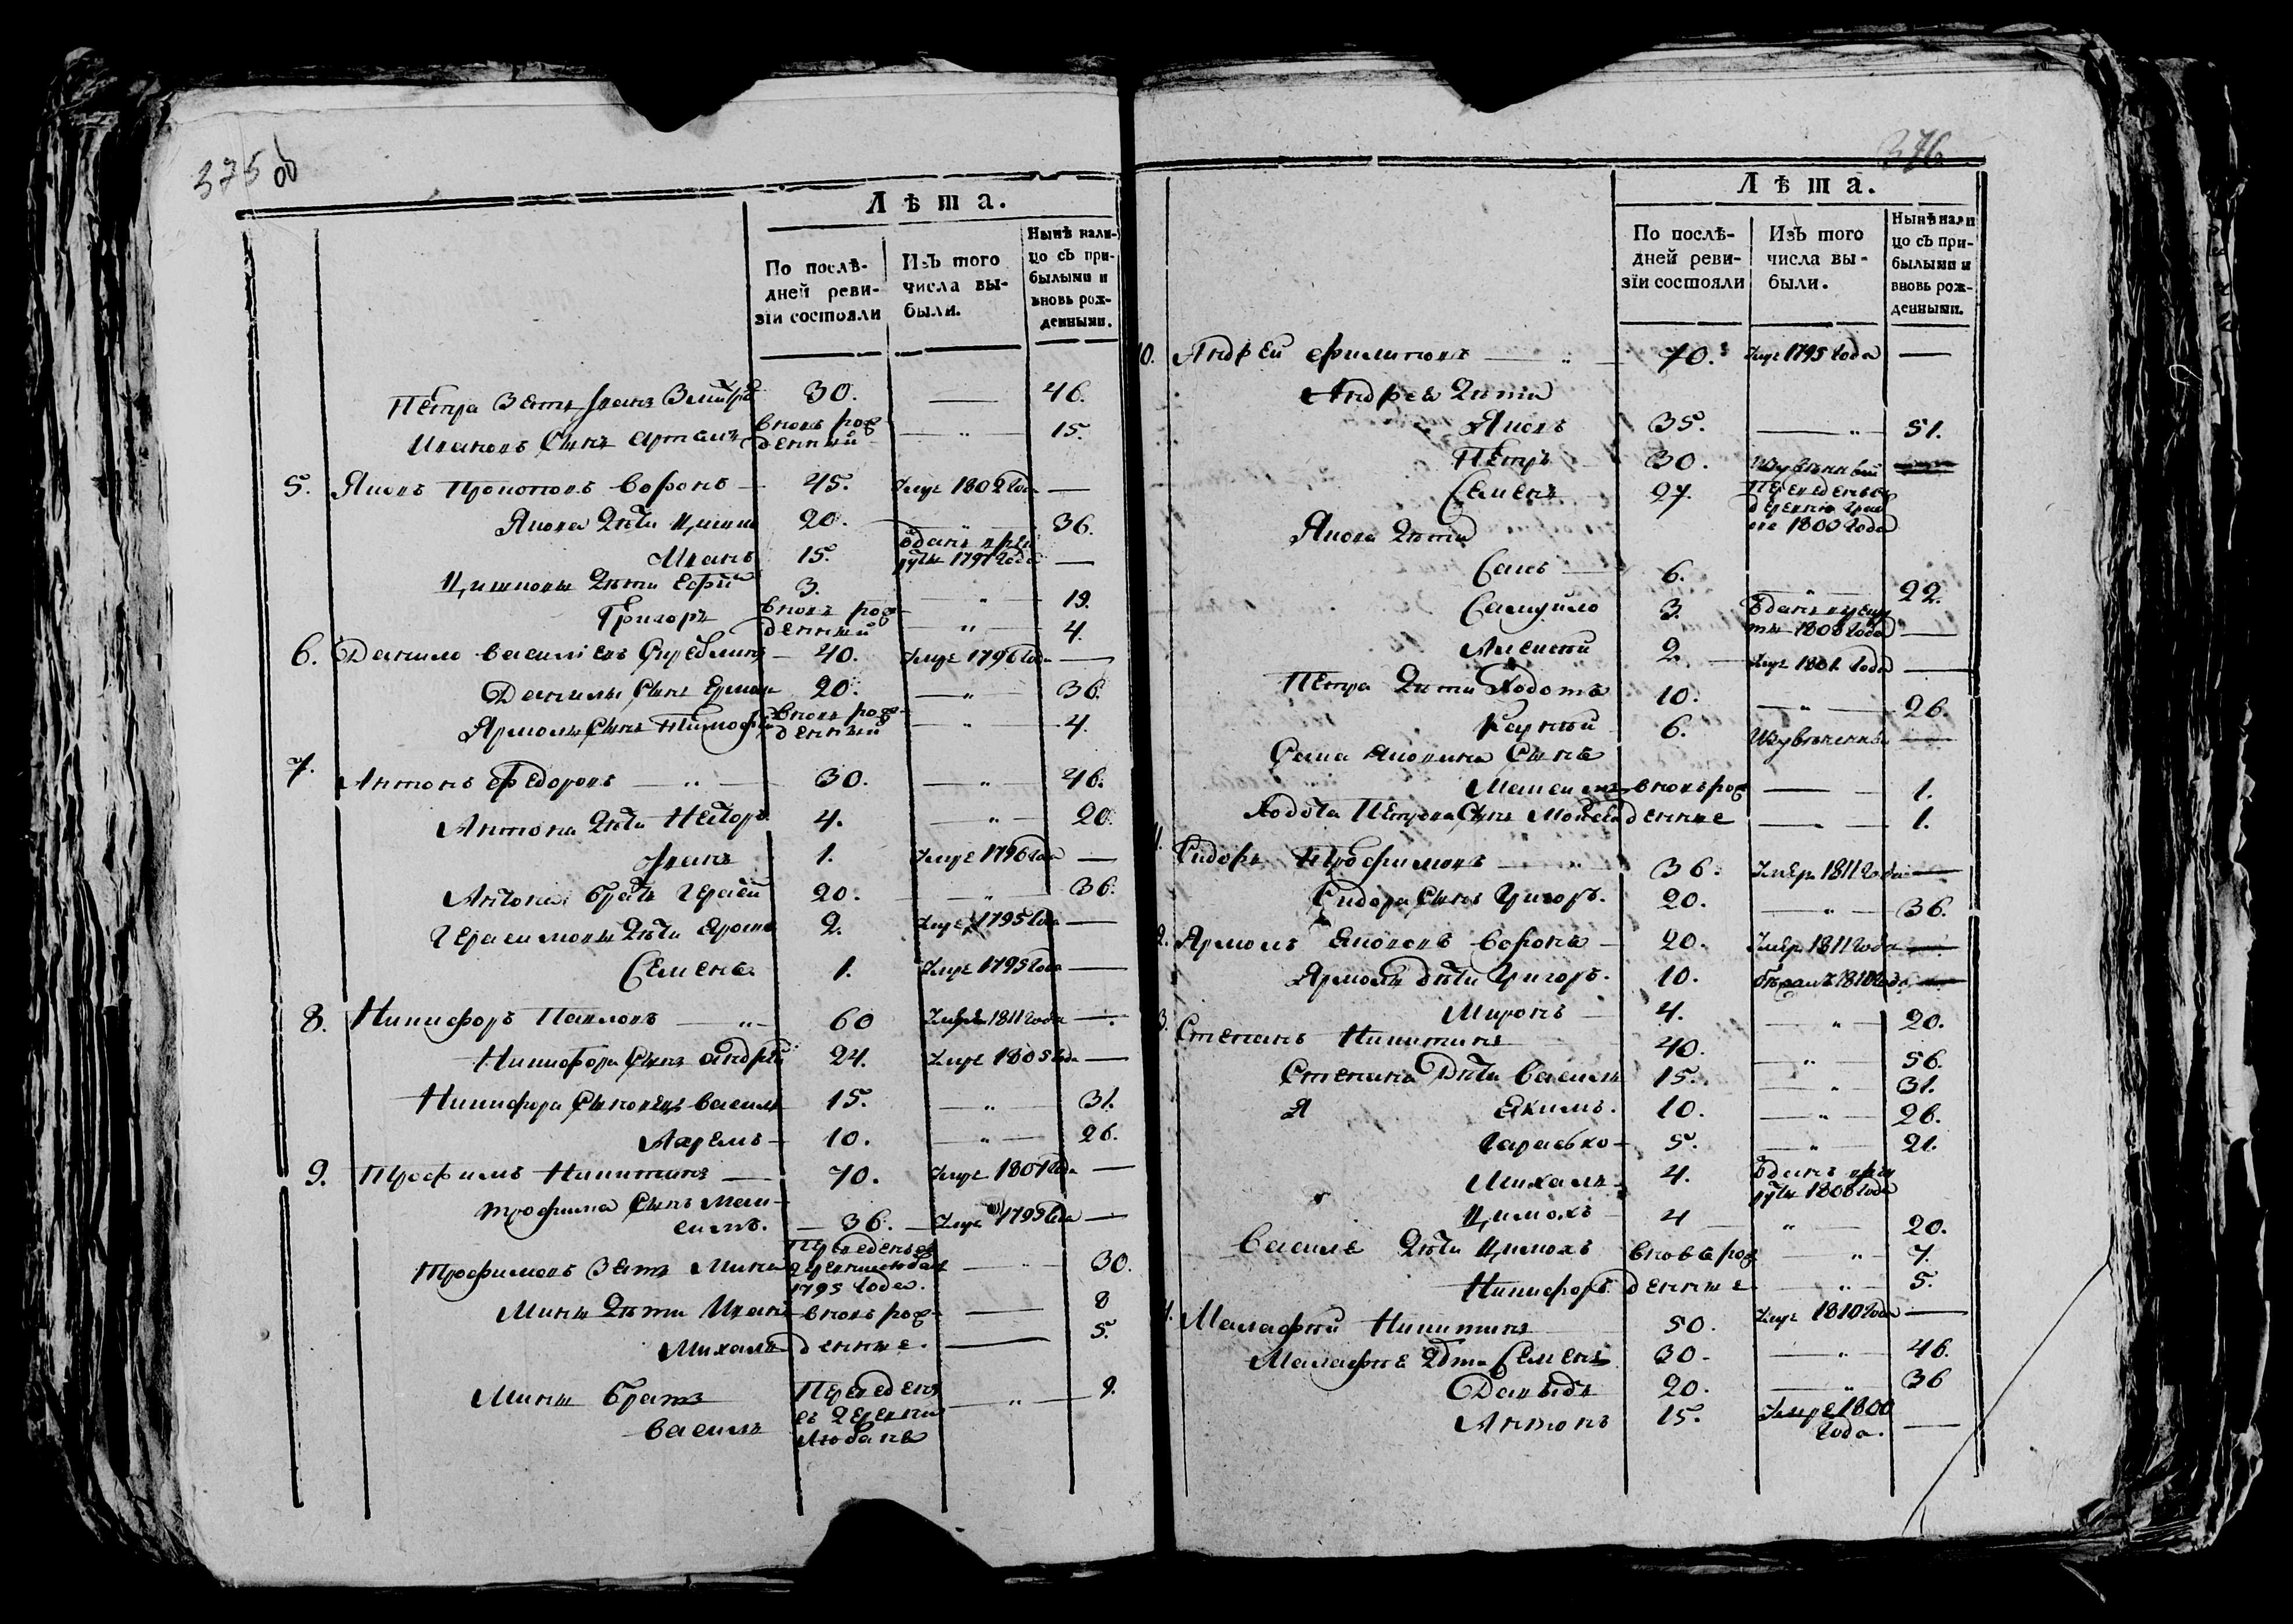 375 об
Лѣта.
По послѣдней ревизіи состояли
Изъ того числа выбыли.
Нынѣ налицо съ прибылыми и вновь рожденными.
Петра Зять 30. — 46.
Ивановъ Сынъ Артемъ вновь рожденный — 15.
5. Яковъ Прокоповъ Воронъ — 45. умре 1802 года —
Якова дѣти 20. — 36.
Иванъ 15. Отданъ 1797 года —
дѣти 3. — 19.
Григоръ вновь рожденный — 4.
6. Данило Васильевъ — 40. умре 1796 года —
Данилы Сынъ Ермол 20. — 36.
Ярмолы Сынъ Тимофей вновь рожденный — 4.
7. Антонъ Федоровъ — 30. — 46.
Антона дѣти Несторъ 4. — 20.
Иванъ 1. умре 1796 года —
Антона братъ Герасим 20. — 36.
Герасимовы дѣти 2. умре 1795 года —
Семенъ 1. умре 1795 года —
8. Никифоръ Павловъ — 60 умре 1811 года —
Никифора Сынъ Андрей 24. умре 1805 года —
Никифора Сыновья Василь 15. — 31.
Ахремъ — 10. — 26.
9. Трофимъ Никитинъ — 70. умре 1801 года —
Трофима Сынъ Мак-
симъ. — 36. — умре 1795 года —
Трофимовъ Зять Мина Переведенъ съ деревни Любань 1795 года. — 30.
Мины дѣти Иванъ вновь рож- — 8
Михалъ денные. — 5.
Мины братъ Переведенъ — 9.
Василь съ деревни Любань
376
Лѣта.
По послѣдней ревизіи состояли
Изъ того числа выбыли.
Нынѣ налицо съ прибылыми и вновь рожденными.
10. Андрей Филиповъ — 70. умре 1795 года —
Андрея дѣти
Яковъ 35. — 51.
Петръ 30.
Семенъ 27. Переведенъ въ деревню 1800 года
Якова дѣти
Савъ — 6. — 22.
Самуйло 3. Отданъ 1808 года —
Алексѣй 2. — умре 1801 года —
Петра дѣти Ходотъ 10. — 26.
6. —
Сава Яковлева Сынъ
Максимъ вновь рож — 1.
Ходота Петрова Сынъ Мойсей денные — 1.
Сидоръ Трофимовъ — 36. умер 1811 года —
Сидора Сынъ Григоръ. 20. — 36.
Ярмолъ Яковлевъ Воронъ — 20. умер 1811 года —
Ярмолы дѣти Григоръ. 10. 1810 года —
Миронъ — 4. — 20.
Степанъ Никитинъ 40. — 56.
Степана Дѣти Василь 15. — 31.
Якимъ. 10. — 26.
Тарасько — 5. — 21.
Михалъ 4. Отданъ 1808 года
Цимохъ 4 — 20.
Василя дѣти Цимохъ вновь рож — 7.
Никифоръ. денные — 5.
Малафѣй Никитинъ 50. умре 1810 года —
Малафѣе Дѣти Семенъ 30. — 46.
Давыдъ 20. — 36
Антонъ 15. умре 1800 года. —